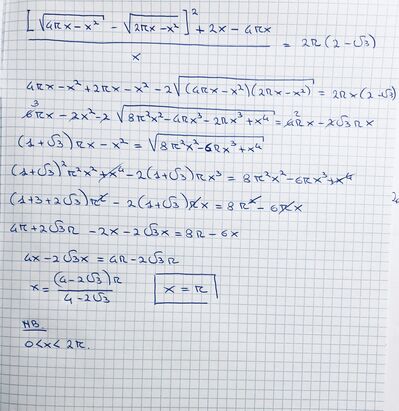 [√4rx-x² - √2rx-x²]² + 2x - 4rx
x
= 2r(2-√3)
4rx-x²+2rx-x²-2√(4rx-x²)(2rx-x²) = 2rx(2-√3)
3
6rx-2x²-2√8r²x²-4rx³-2rx³+x⁴ = 4rx-2√3rx
2
(1+√3)rx-x² = √8r²x²-6rx³+x⁴
(1+√3)²r²x²+x⁴-2(1+√3)rx³ = 8r²x²-6rx³+x⁴
(1+3+2√3)r²-2(1+√3)rx = 8r²-6rx
4r+2√3r-2x-2√3x = 8r-6x
4x-2√3x = 4r-2√3r
x = (4-2√3)r
4-2√3
x = r
NB.
0<x<2r.